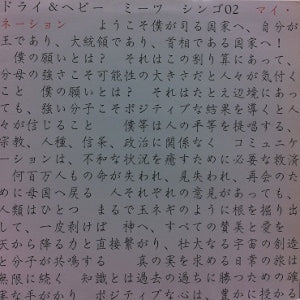 ドライ＆ヘビー　ミーツ　シンゴ02　マイ・
ネーション　　ようこそ僕が司る国家へ、自分が
王であり、大統領であり、首相である国家へ！
僕の願いとは？　それはこの割り算にあって、
分母の強さこそ可能性の大きさだと人々が気付く
こと　僕の願いとは？　それはたとえ辺境にあっ
ても、強い分子こそポジティブな結果を導くと人
々が信じること　　僕等は人の手等を提唱する、
宗教、人種、信条、政治に関係なく　コミュニケ
ーションは、不和な状況を癒すために必要な救済
何百万人もの命が失われ、見失われ、再会のた
めに母国へ戻る　人それぞれの意見があっても、
人類はひとつ　まるで玉ネギのように根を掘り出
して、一皮剥けば　神へ、すべての賛美と愛を
天から降る力と直接繋がり、壮大なる宇宙の創造
と分子が共鳴する　　真の美を求める日常の旅は
無限に続く　知識とは過去の過ちに勝つための確
実な手がかり　ポジティブな人は、豊かに授かる